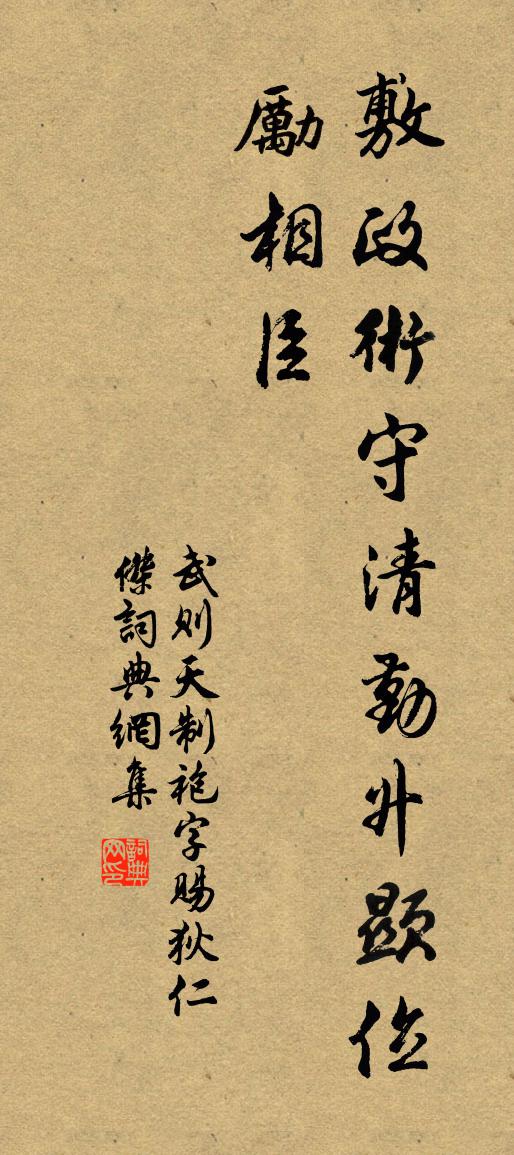 敷政術守清勤升顯位
勵相臣
武則天制袍字賜狄仁
傑詞典網集
詞典
网印